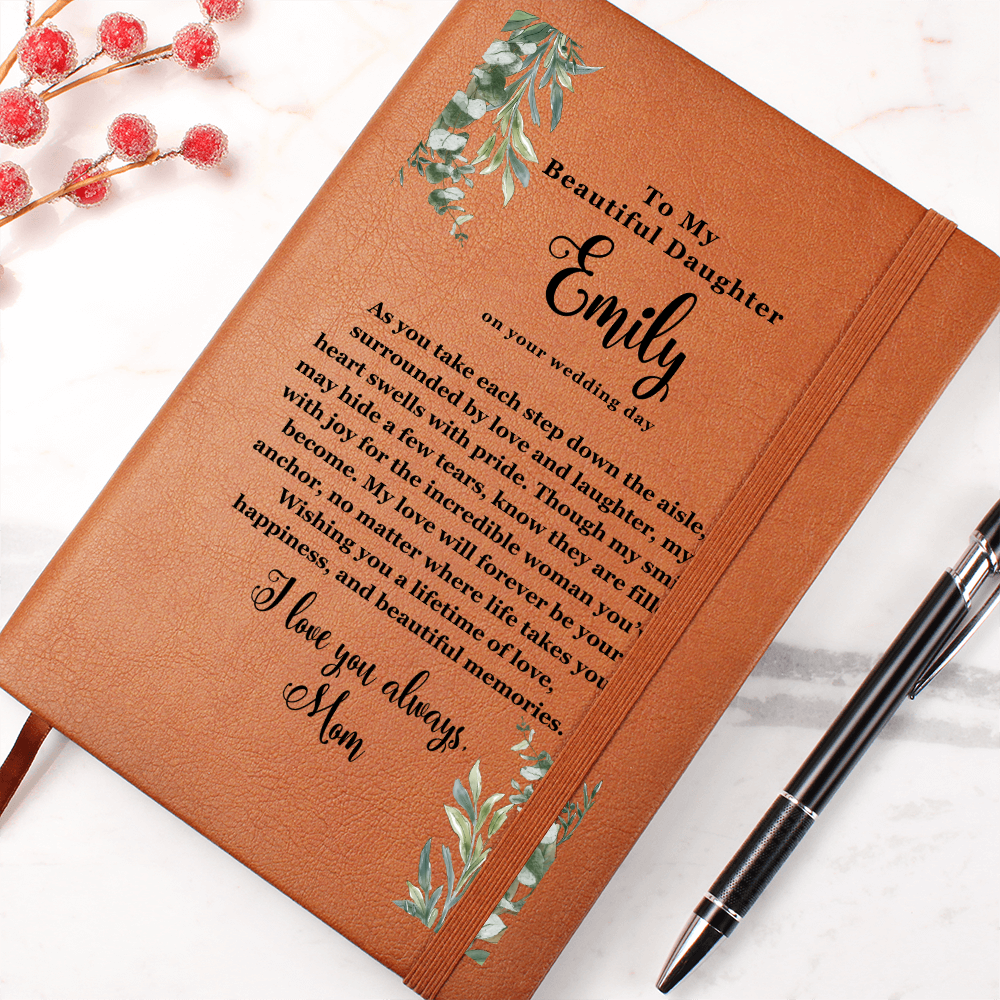 To My
Beautiful Daughter
Emily
on your wedding day
As you take each step down the aisle,
surrounded by love and laughter, my
heart swells with pride. Though my
may hide a few tears, know they are
with joy for the incredible woman
become. My love will forever be your
anchor, no matter where life takes you
Wishing you a lifetime of love,
happiness, and beautiful memories.
I love you always,
Mom